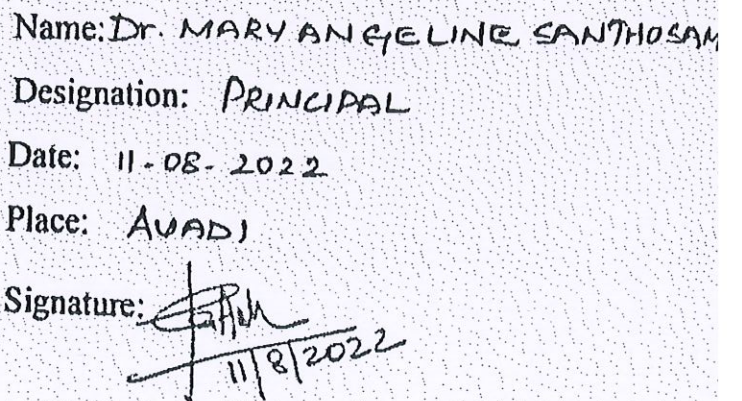 Name: Dr. MARY ANGELINE SANTHOSAM
Designation: PRINCIPAL
Date: 11-08-2022
Place: AVADI
Signature:
11/8/2022